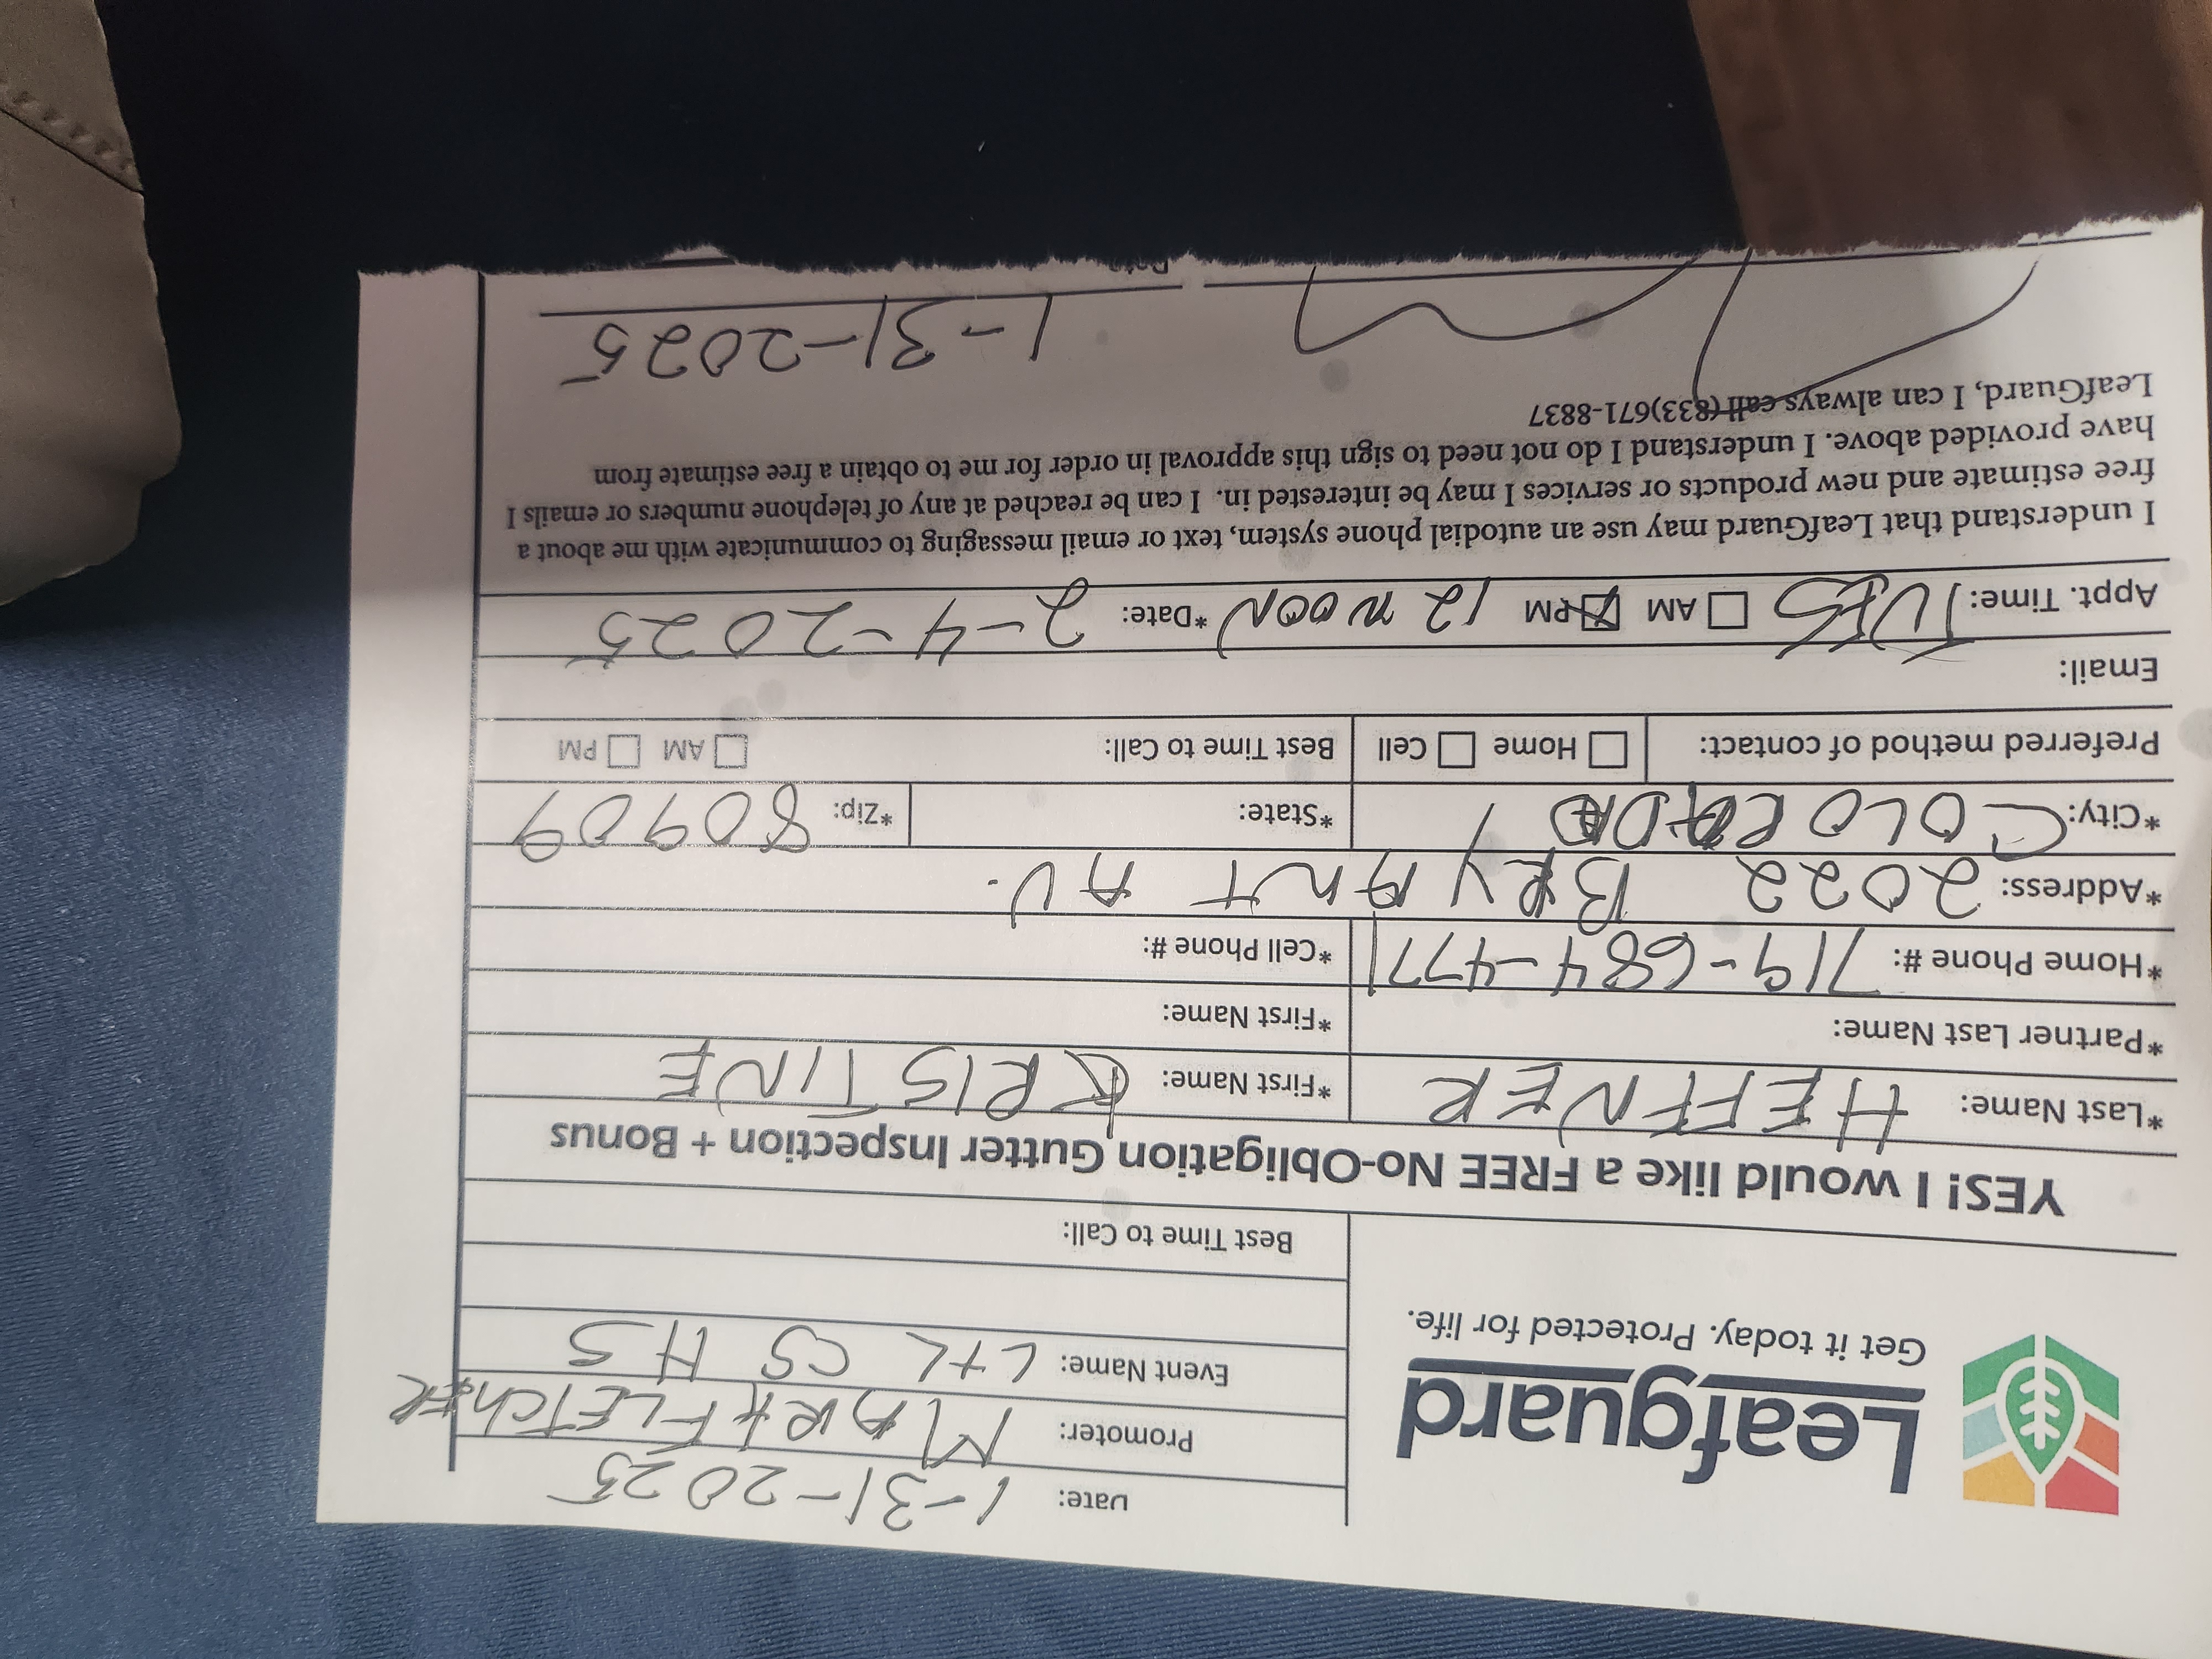 Leafguard
Get it today. Protected for life.
Date: 1-31-2025
Promoter: MARK FLETCHER
Event Name: L+L CS HS
Best Time to Call:
YES! I would like a FREE No-Obligation Gutter Inspection + Bonus
*Last Name: HEFFNER *First Name: KRISTINE
*Partner Last Name: *First Name:
*Home Phone #: 719-684-4771 *Cell Phone #:
*Address: 2022 BRYANT AV.
*City: *State: *Zip: 80909
Preferred method of contact: Home Cell Best Time to Call: AM PM
Email:
Appt. Time: TUES AM PM 12 NOON *Date: 2-4-2025
I understand that LeafGuard may use an autodial phone system, text or email messaging to communicate with me about a
free estimate and new products or services I may be interested in. I can be reached at any of telephone numbers or emails I
have provided above. I understand I do not need to sign this approval in order for me to obtain a free estimate from
LeafGuard, I can always call (833)671-8837
1-31-2025